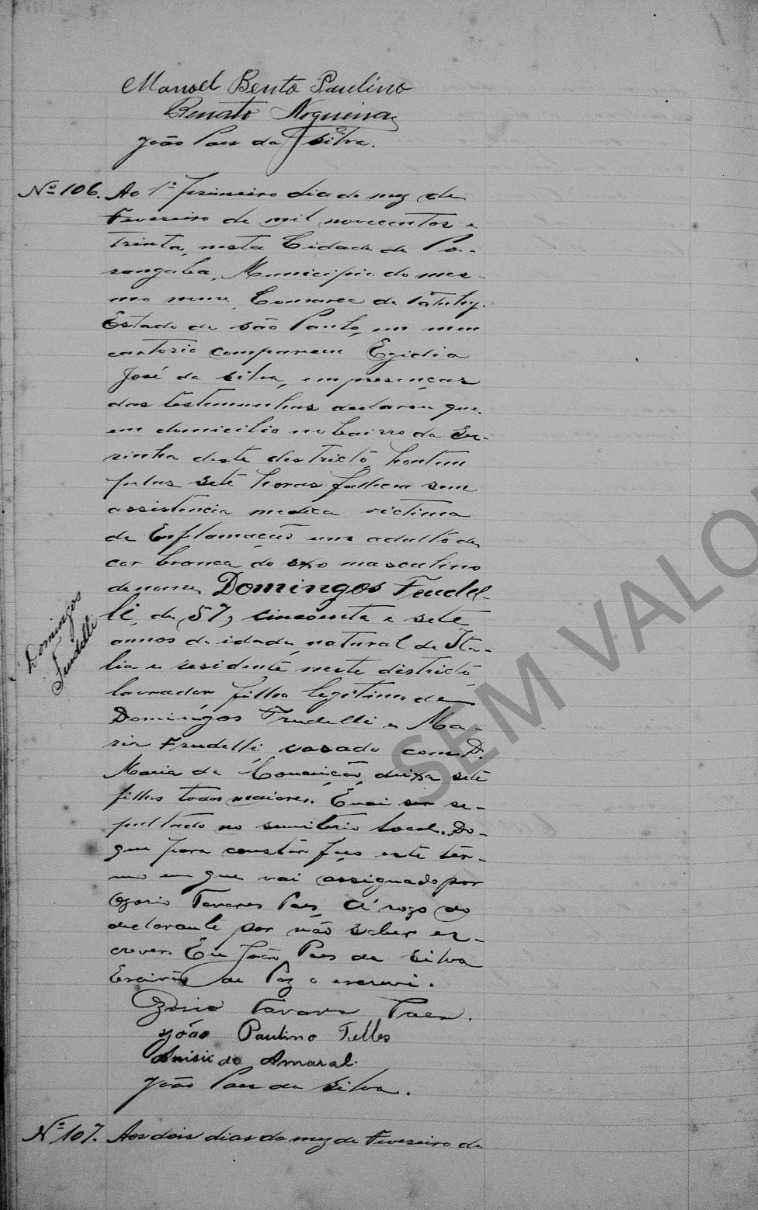 Manoel Bento Paulino
Renato Nogueira
João Paes da Silva.
Nº 106. Ao 1º primeiro dia do mez de
Fevereiro de mil novecentos e
trinta, nesta Cidade de Po-
rangaba, Municipio do mes-
mo nome, Comarca de Tatuhy.
Estado de São Paulo, em meu
cartorio compareceu Egidia
José da Silva, em presenças
das testemunhas declarou que
em domicilio no bairro da Ser-
rinha deste districto, hontem
pelas sete horas falleceu sem
assistencia medica victima
de Enflamação um adulto de
cor branca do sexo masculino
de nome Domingos Feudel-
li, de 57, cincoenta e sete
annos de idade, natural de Ita-
lia e residente neste districto
lavrador filho legitimo de
Domingos Frudelli e Ma-
ria Frudelli, casado com D.
Maria da Conceição, deixa sete
filhos todos maiores. E vai ser se-
pultado no semiterio local. Do
que para constar fis este ter-
mo em que vai assignado por
Ozorio Tavares Paes, a rogo do
declarante por não saber es-
crever. Eu João Paes da Silva
Escrivão de Paz o escrevi.
Ozorio Tavares Paes.
João Paulino Telles
Anisio do Amaral.
João Paes da Silva.
Domingos
Feudelli
Nº 107. Aos dois dias do mez de Fevereiro de
SEM VALO